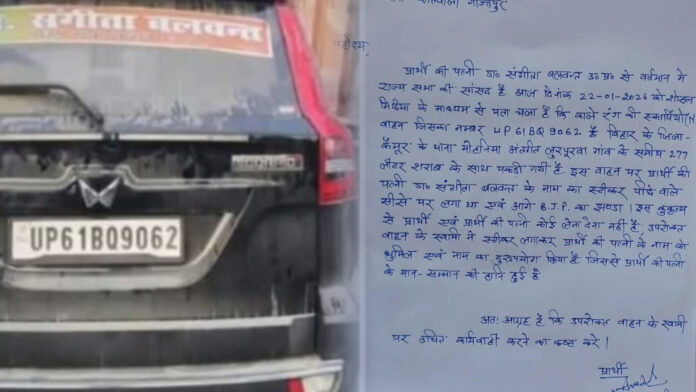 संगीता बलवन्त
UP61BQ9062
महोदय,
प्रार्थी की पत्नी डा० संगीता बलवन्त उ० प्र० से वर्तमान मे
राज्य सभा की सांसद है आज दिनांक 22-01-2026 को शोसल
मिडिया के माध्यम से पता चला है कि काले रंग की स्कार्पियो(N
वाहन जिसका नम्बर UP61BQ9062 है बिहार के जिला-
कैमूर के थाना मोहनिया अन्तर्गत लुरपुरवा गांव के समीप 277
लीटर शराब के साथ पकड़ी गयी है इस वाहन पर प्रार्थी की
पत्नी डा० संगीता बलवन्त के नाम का स्टीकर पीछे वाले
सीसे पर लगा था एवं आगे B.J.P. का झण्डा। इस कृकृत्य
से प्रार्थी एवं प्रार्थी की पत्नी कोई लेना देना नहीं है, उपरोक्त
वाहन के स्वामी ने स्टीकर लगाकर प्रार्थी की पत्नी के नाम को
धुमिल एवं नाम का दुरुपयोग किया है जिससे प्रार्थी की पत्नी
के मान-सम्मान की हानि हुई है
अत: आग्रह है कि उपरोक्त वाहन के स्वामी
पर उचित कार्यवाही करने का कष्ट करे।
प्रार्थी